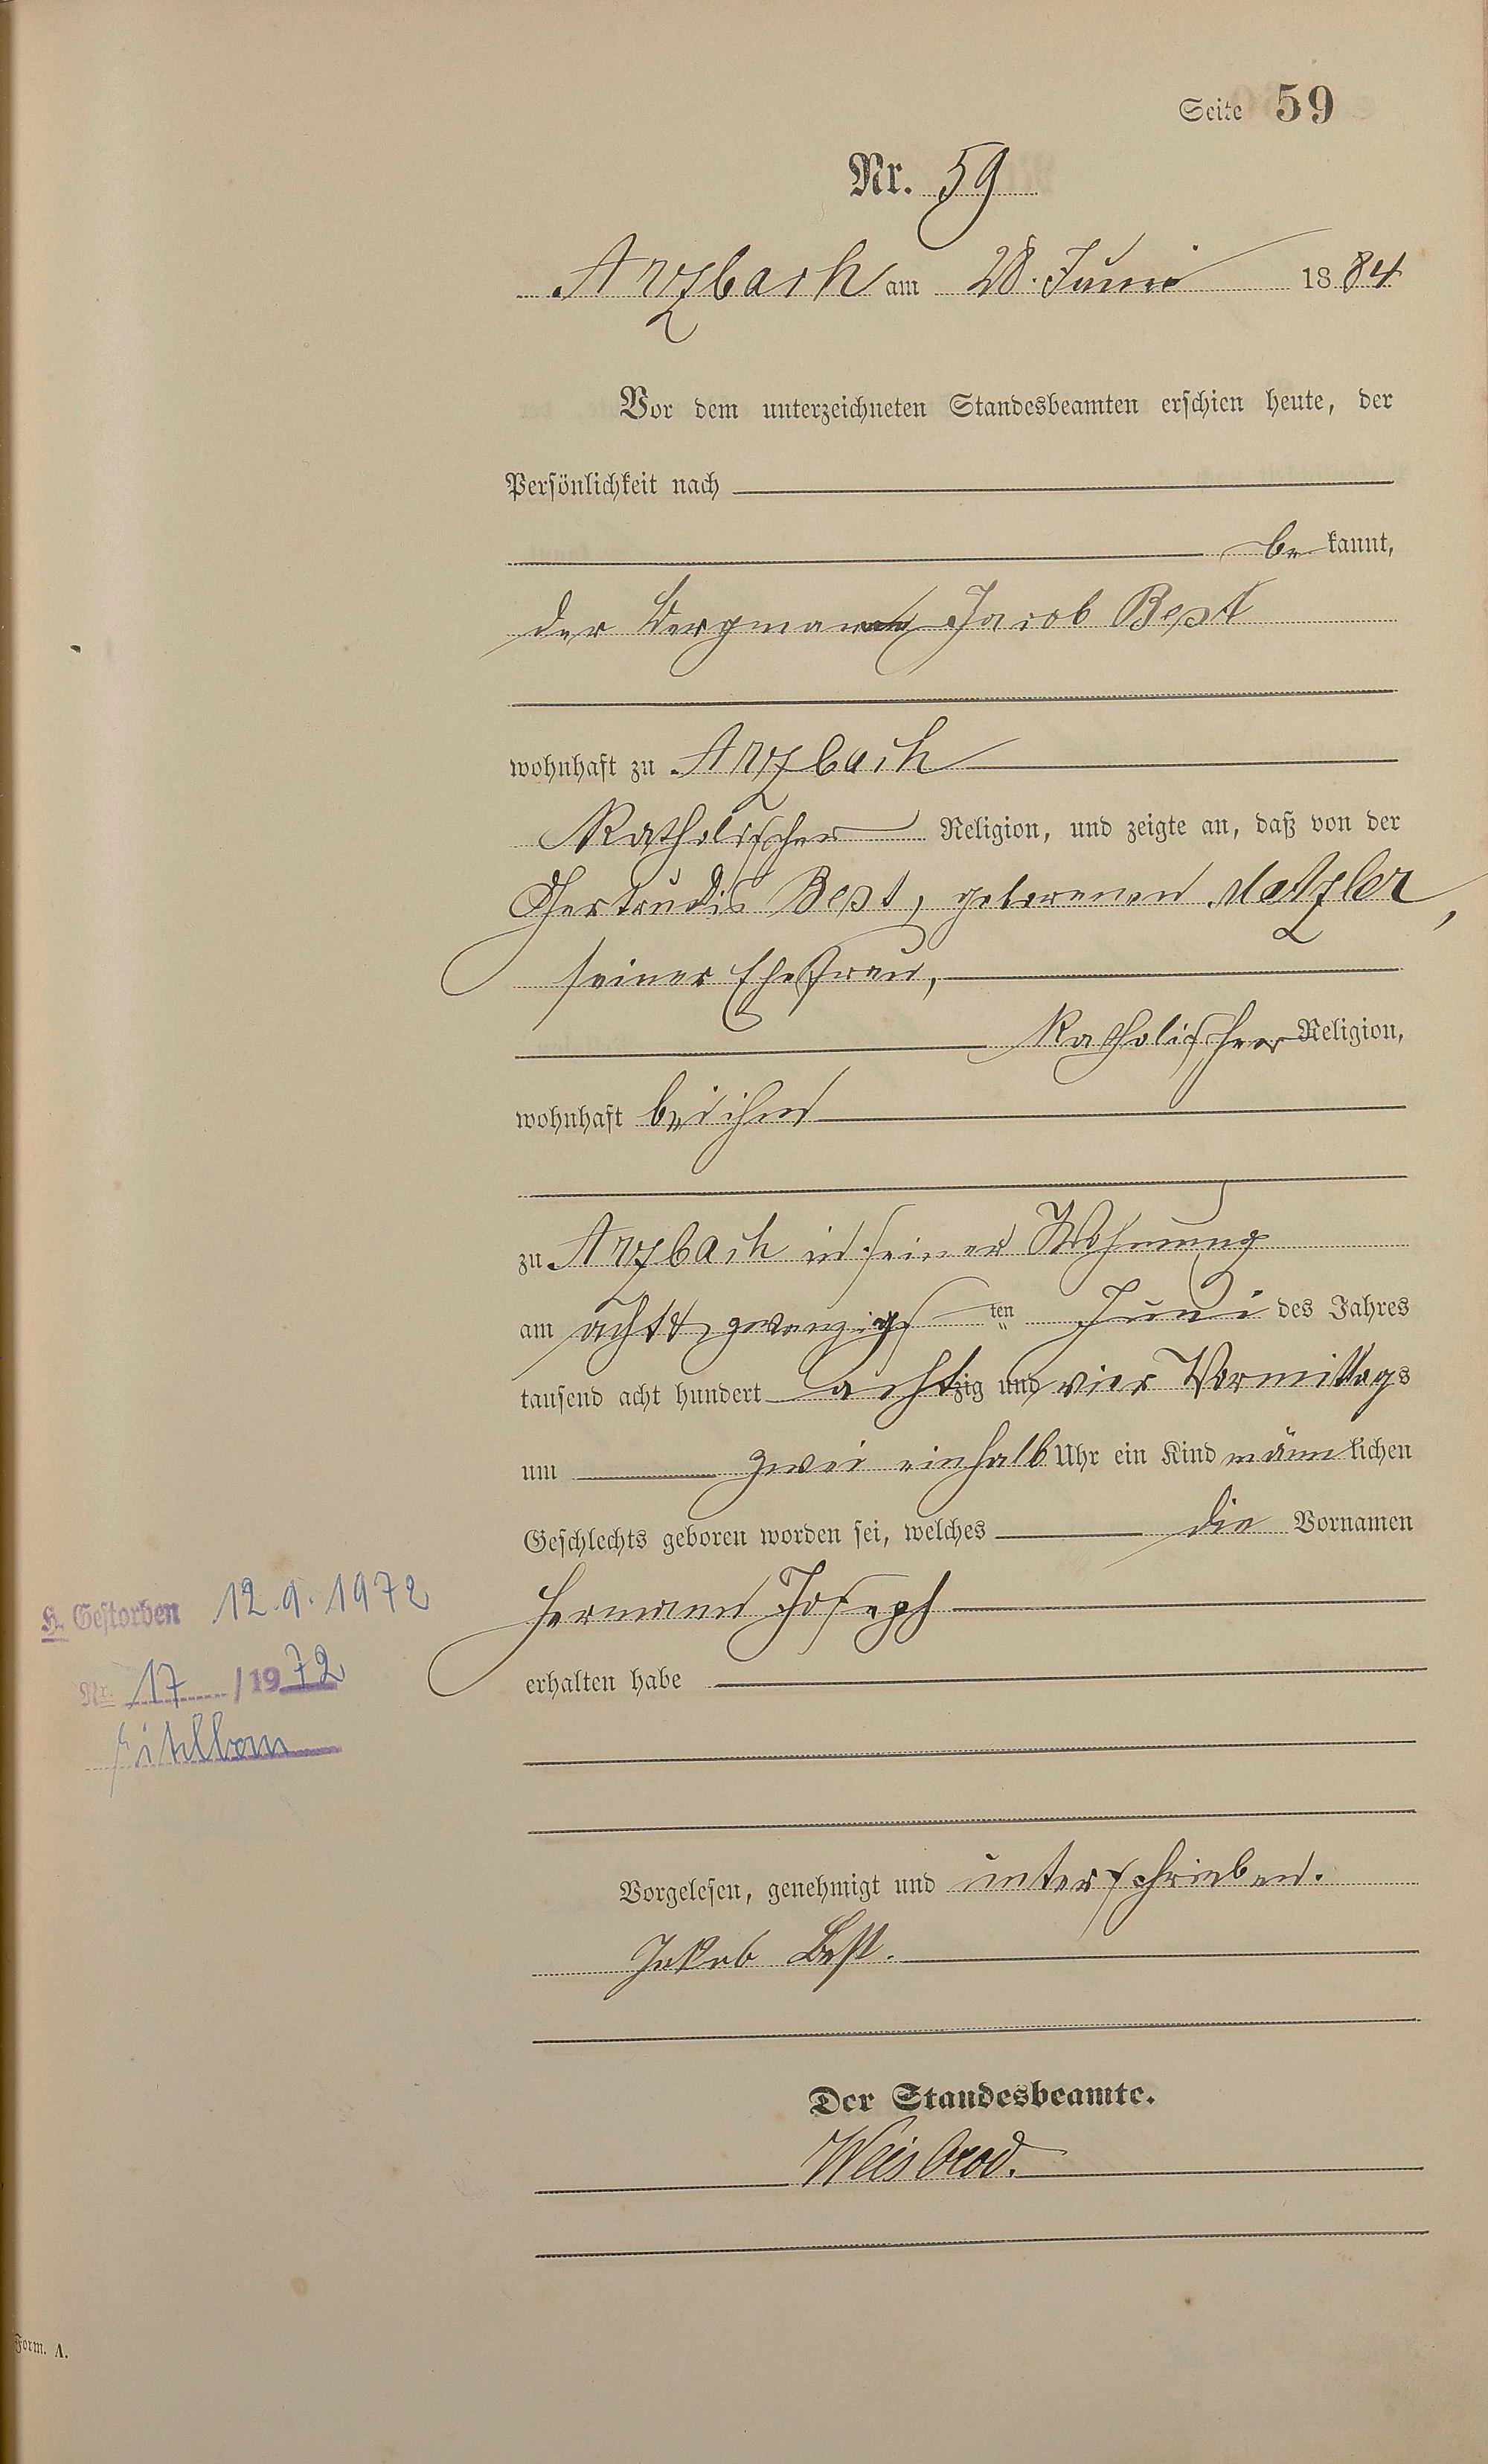 Seite 59
Nr. 59
Arzbach am 28. Juni 1884
Vor dem unterzeichneten Standesbeamten erschien heute, der
Persönlichkeit nach
bekannt,
der Bergmann Jacob Best
wohnhaft zu Arzbach
Katholischer Religion, und zeigte an, daß von der
Gertrudis Best, geborenen Metzler,
seiner Ehefrau,
Katholischer Religion,
wohnhaft bei ihm
zu Arzbach in seiner Wohnung
am acht zwanzigs ten Juni des Jahres
tausend acht hundert achtzig und vier Vormittags
um zwei einhalb Uhr ein Kind männlichen
Geschlechts geboren worden sei, welches die Vornamen
Hermann Joseph
erhalten habe
H. Gestorben 12.9.1972
Nr. 17 /1972
Vorgelesen, genehmigt und unterschrieben.
Jakob Best.
Der Standesbeamte.
Weisbrod.
Form. A.